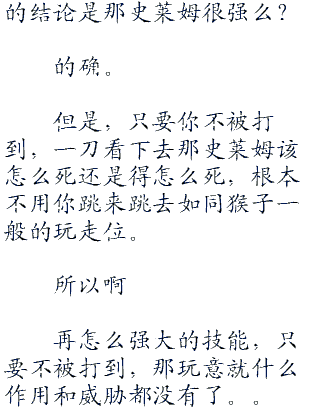 的结论是那史莱姆很强么？
的确。
但是，只要你不被打
到，一刀看下去那史莱姆该
怎么死还是得怎么死，根本
不用你跳来跳去如同猴子一
般的玩走位。
所以啊
再怎么强大的技能，只
要不被打到，那玩意就什么
作用和威胁都没有了。。